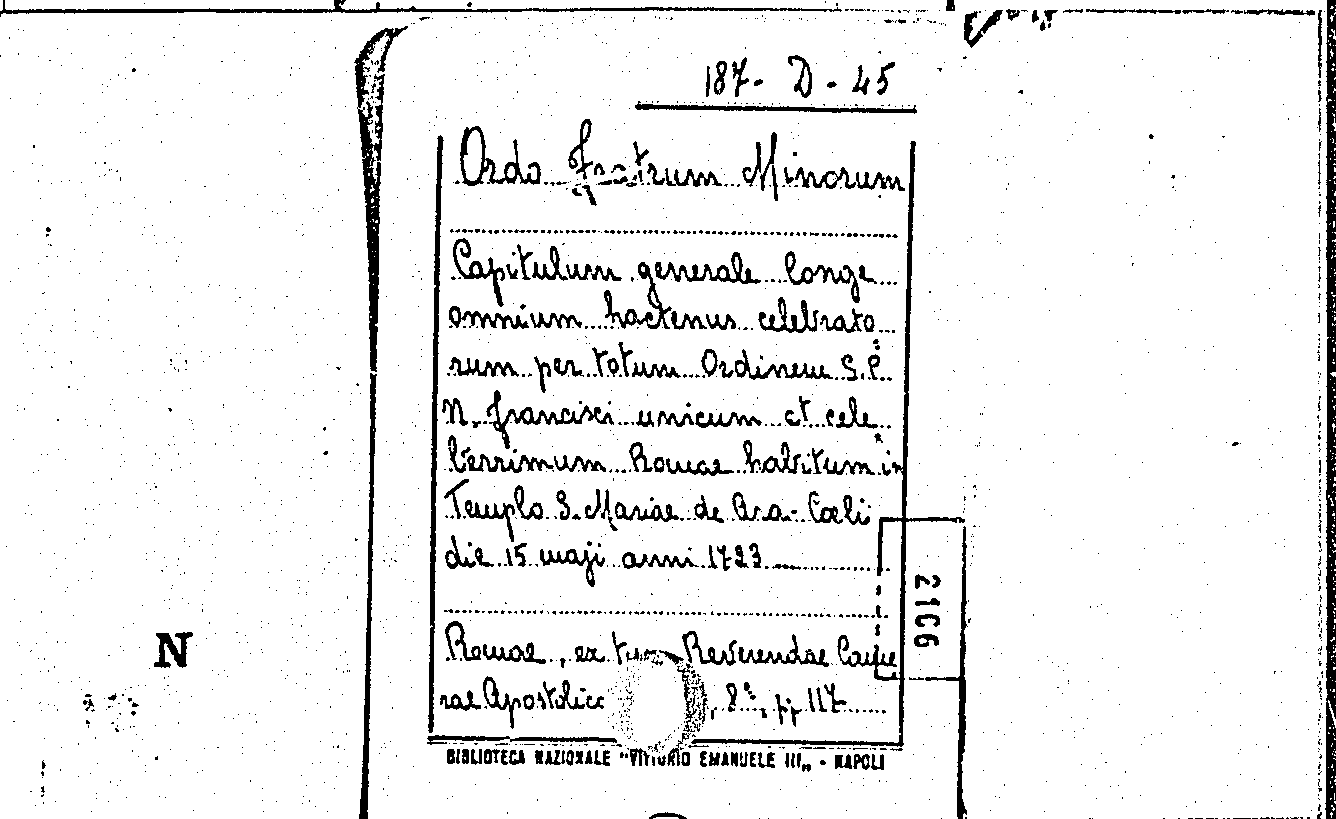 187 - D - 45
Ordo Fratrum Minorum
Capitulum generale longe
omnium hactenus celebrato
rum per totum Ordinem S. P.
N. Francisci unicum et cele
berrimum Romae habitum in
Templo S. Mariae de Ara-Cœli
die 15 maji anni 1723
Romae, ex Reverendae Came
rae Apostolic , 8º, pp 117
BIBLIOTECA NAZIONALE "VITTORIO EMANUELE III„ - NAPOLI
2106
N